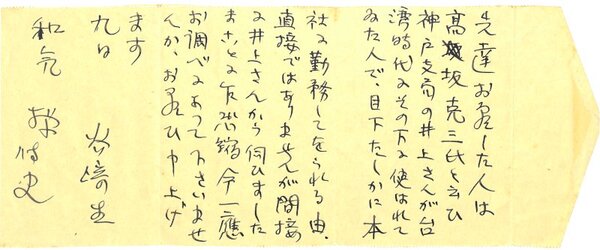 先達お尋した人は
高坂克三氏と云ひ
神戸支局の井上さんが台
湾時代にその下に使はれて
ゐた人で、目下たしかに本
社に勤務してをられる由、
直接ではありませんが間接
に井上さんから伺ひました
まことに乍恐縮今一應
お調べになつて下さいませ
んか、お尋ひ申上げ
ます
九日
谷崎生
和気 様 侍史